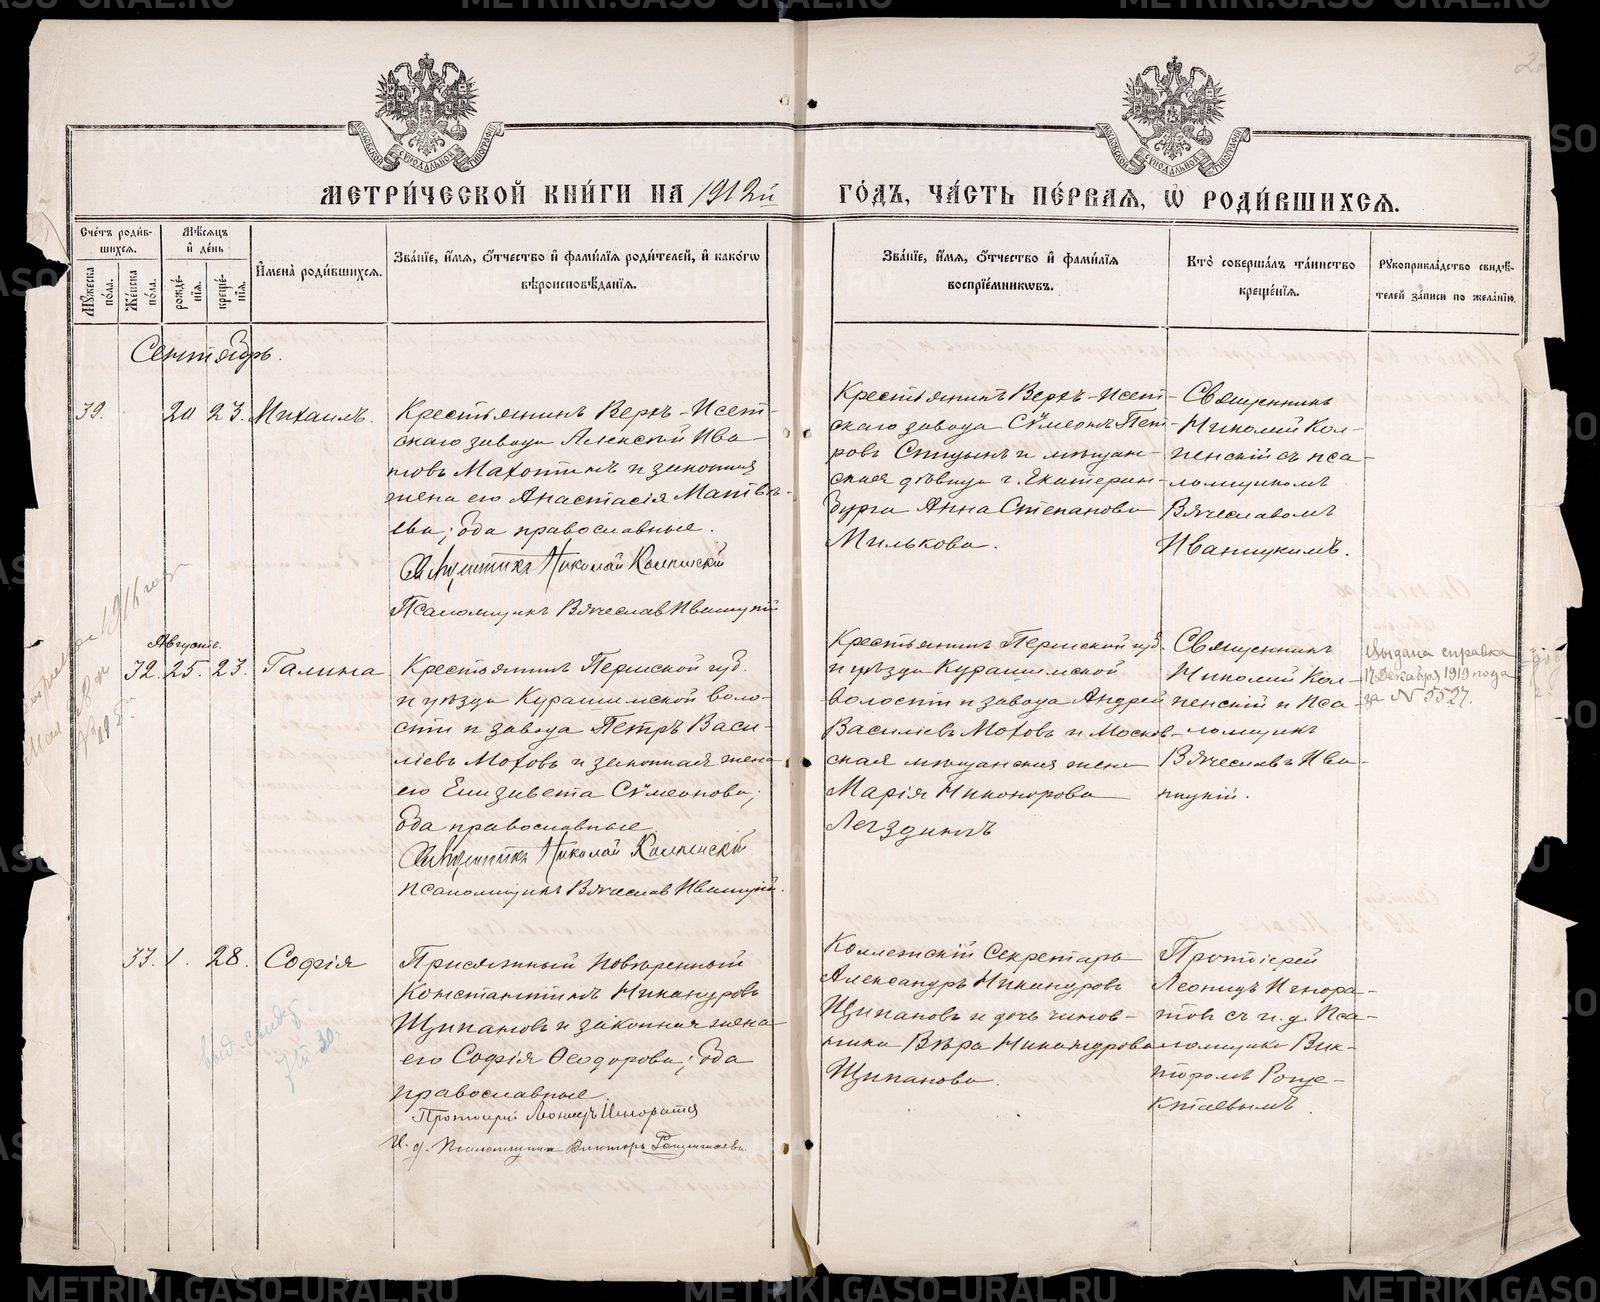 МЕТРИ́ЧЕСКОЙ КНИ́ГИ НА 1912й
ГО́ДЪ, ЧА́СТЬ ПЕ́РВАѦ, Ѡ РОДИ́ВШИХСѦ.
Сче́тъ роди́в-
шихсѧ.
Мѣ́сѧцъ
и де́нь
Му́жеска
по́ла.
Же́нска
по́ла.
рожде́-
нїѧ.
креще́-
нїѧ.
Имена̀ роди́вшихсѧ.
Зва́нїе, и́мѧ, о́тчество и фами́лїѧ роди́телей, и како́гѡ
вѣроисповѣ́данїѧ.
Зва́нїе, и́мѧ, о́тчество и фами́лїѧ
воспрїе́мникѡвъ.
Кто̀ соверша́лъ та́инство
креще́нїѧ.
Рꙋкоприкла́дство свидѣ́-
телей за́писи по жела́нїю.
Сентябрь.
39. 20 23. Михаилъ.
Крестьянинъ Верхъ-Исет-
скаго завода Алексѣй Ива-
новъ Махотинъ и законная
жена его Анастасія Матвѣ-
ева; оба православные.
Священникъ Николай Колпенскій
Псаломщикъ Вячеслав Иваницкій
Крестьянинъ Верхъ-Исет-
скаго завода Сѵмеонъ Пет-
ровъ Спицынъ и мѣщан-
ская дѣвица г. Екатерин-
бурга Анна Степанова
Милькова.
Священникъ
Николай Кол-
пенскій съ пса-
ломщикомъ
Вячеславомъ
Иваницкимъ.
Августъ.
32. 25. 23. Галина
Крестьянинъ Пермской губ.
и уѣзда Курашимской воло-
сти и завода Петръ Васи-
ліевъ Моховъ и законная жена
его Елизавета Сѵмеонова;
оба православные
Священникъ Николай Колпенскій
псаломщикъ Вячеслав Иваницкій.
Крестьянинъ Пермской губ.
и уѣзда Курашимской
волости и завода Андрей
Василіевъ Моховъ и Москов-
ская мѣщанская жена
Марія Никонорова
Легздинъ
Священникъ
Николай Кол-
пенскій и Пса-
ломщикъ
Вячеславъ Ива-
ницкій.
Выдана справка
17 декабря 1919 года
за № 5527.
33. 1. 28. Софія
Присяжный Повѣренный
Константинъ Никандровъ
Щипановъ и законная жена
его Софія Ѳеодорова; оба
православные.
Протоіерей Леонидъ Игноратовъ
И. д. Псаломщика Викторъ
Коллежскій Секретарь
Александръ Никандровъ
Щипановъ и дочь чинов-
ника Вѣра Никандрова
Щипанова.
Протоіерей
Леонидъ Игнора-
товъ съ и. д. Пса-
ломщика Вик-
торомъ
выд. свид.
30.
METRIKI.GASO-URAL.RU